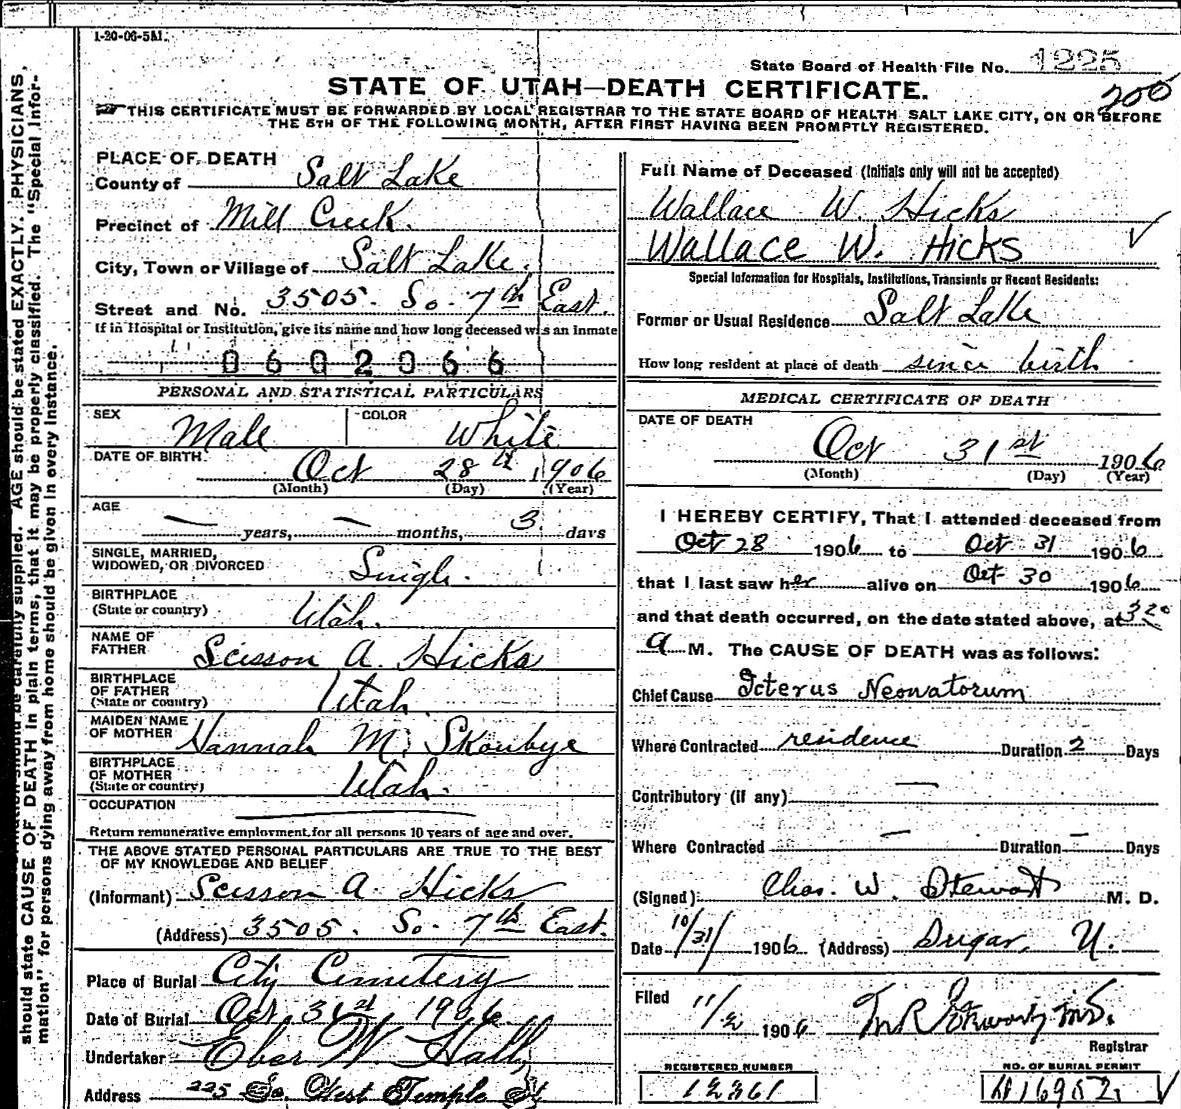 1-20-06-5M.
State Board of Health File No. 1225
STATE OF UTAH—DEATH CERTIFICATE.
200
THIS CERTIFICATE MUST BE FORWARDED BY LOCAL REGISTRAR TO THE STATE BOARD OF HEALTH SALT LAKE CITY, ON OR BEFORE
THE 5TH OF THE FOLLOWING MONTH, AFTER FIRST HAVING BEEN PROMPTLY REGISTERED.
should be carefully supplied. AGE should be stated EXACTLY. PHYSICIANS,
should state CAUSE OF DEATH in plain terms, that it may be properly classified. The "Special Infor-
mation" for persons dying away from home should be given in every instance.
PLACE OF DEATH
County of Salt Lake
Precinct of Mill Creek.
City, Town or Village of Salt Lake.
Street and No. 3505. So. 7th East.
If in Hospital or Institution, give its name and how long deceased was an inmate
0602066
PERSONAL AND STATISTICAL PARTICULARS
SEX Male COLOR White
DATE OF BIRTH. Oct 28th 1906
(Month) (Day) (Year)
AGE
— years, — months, 3 days
SINGLE, MARRIED,
WIDOWED, OR DIVORCED Single.
BIRTHPLACE
(State or country) Utah.
NAME OF
FATHER Scisson A. Hicks
BIRTHPLACE
OF FATHER
(State or country) Utah.
MAIDEN NAME
OF MOTHER Hannah M. Skoubye
BIRTHPLACE
OF MOTHER
(State or country) Utah.
OCCUPATION
Return remunerative employment for all persons 10 years of age and over.
THE ABOVE STATED PERSONAL PARTICULARS ARE TRUE TO THE BEST
OF MY KNOWLEDGE AND BELIEF
(Informant) Scisson A. Hicks
(Address) 3505. So. 7th East.
Place of Burial City Cemetery
Date of Burial Oct. 31st 1906.
Undertaker Eber W Hall
Address 225 So. West Temple St
Full Name of Deceased (Initials only will not be accepted)
Wallace W. Hicks
WALLACE W. HICKS
Special Information for Hospitals, Institutions, Transients or Recent Residents:
Former or Usual Residence Salt Lake
How long resident at place of death since birth
MEDICAL CERTIFICATE OF DEATH
DATE OF DEATH
Oct 31st 1906
(Month) (Day) (Year)
I HEREBY CERTIFY, That I attended deceased from
Oct 28 1906 to Oct 31 1906
that I last saw her alive on Oct 30 1906
and that death occurred, on the date stated above, at 320
a M. The CAUSE OF DEATH was as follows:
Chief Cause Icterus Neonatorum
Where Contracted residence Duration 2 Days
Contributory (if any) —
Where Contracted — Duration — Days
(Signed) Chas. W. Stewart M. D.
Date 10/31 1906 (Address) Sugar, U.
Filed 11/2 1906
Registrar
REGISTERED NUMBER
12361
NO. OF BURIAL PERMIT